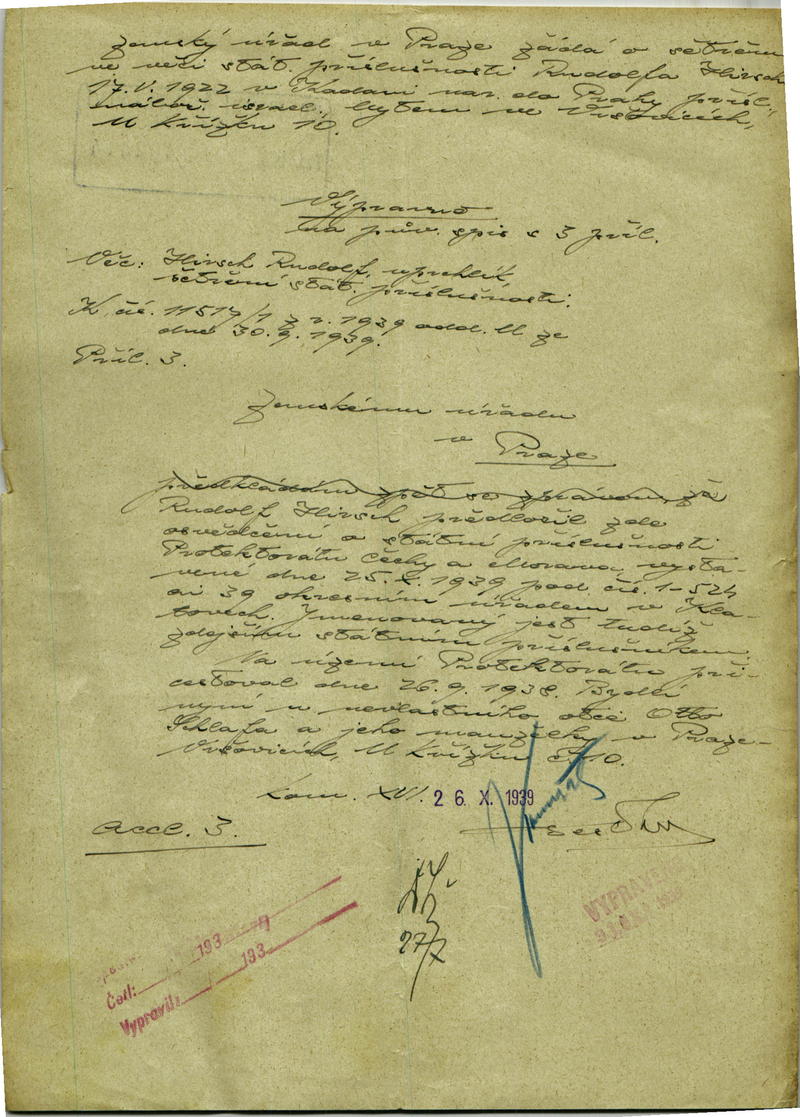 Zemský úřad v Praze žádá o šetření
ve věci stát. příslušnosti Rudolfa Hirsch
17.V. 1922 v Kadani nar. do Prahy přísl.,
israel., bytem ve Vršovicích,
U Křížku 10.
Výpravně
na pův. spis s 3 příl.
Věc: Hirsch Rudolf, uprchlík
šetření stát. příslušnosti.
K čís. 11517/1 z r. 1939 odd. II ze
dne 30.9.1939.
Příl. 3.
Zemskému úřadu
v Praze
předkládám zpět se zprávou, že
Rudolf Hirsch předložil zde
osvědčení o státní příslušnosti
Protektorátu Čechy a Morava, vysta-
vené dne 25.X. 1939 pod čís. 1-524
ai 39 okresním úřadem v Kla-
tovech. Jmenovaný jest tudíž
zdejším státním příslušníkem.
Na území Protektorátu při-
cestoval dne 26.9.1938. Bydlí
nyní u nevlastního otce Otto
Schlafa a jeho manželky v Praze-
Vršovicích, U Křížku č. 10.
Kom. XVI. 26. X. 1939
Accl. 3.
27/X
VYPRAVENO
193
Četl: 193
Vypravil: